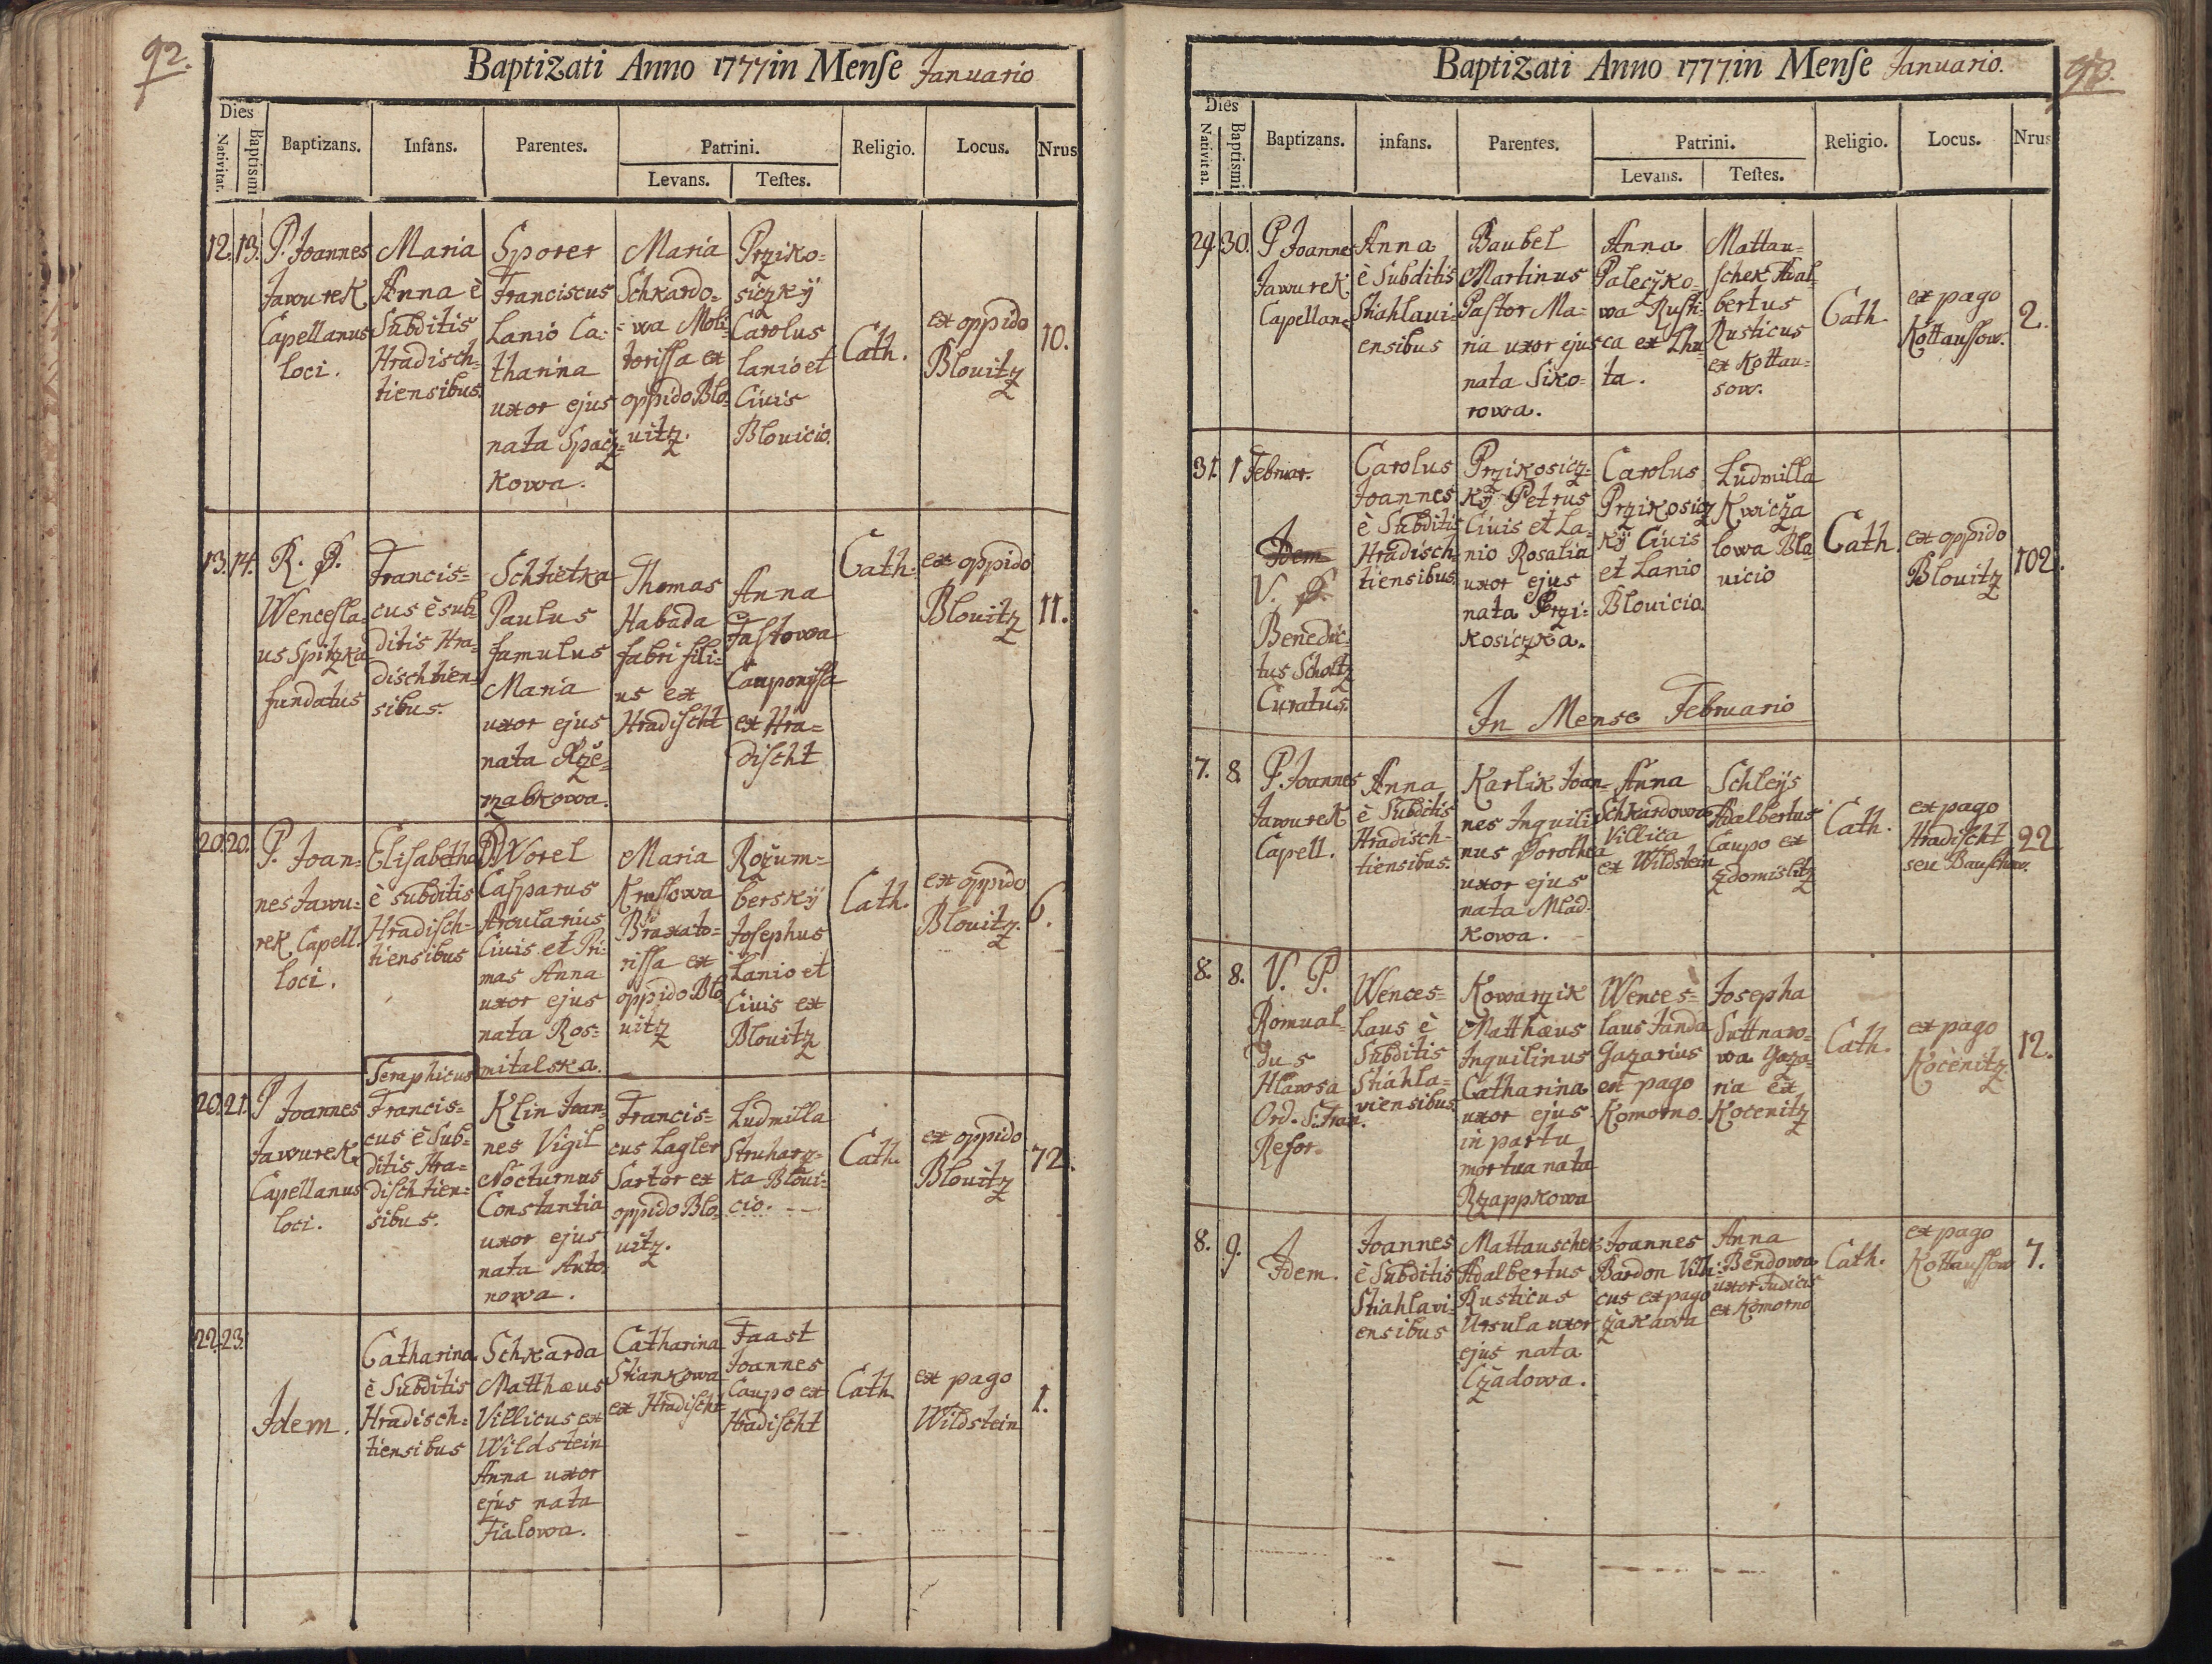 92.
Baptizati Anno 1777 in Menſe Januario
Dies
Nativitat.
Baptismi
Baptizans.
Infans.
Parentes.
Patrini.
Levans.
Teſtes.
Religio.
Locus.
Nrus
12.
13.
P. Joannes
Jawurek
Capellanus
loci.
Maria
Anna è
Subditis
Hradisch=
tiensibus.
Sporer
Franciscus
Lanio Ca=
tharina
uxor ejus
nata Spacž=
kowa.
Maria
Schkardo=
=wa Moli=
toriſſa ex
oppido Blo=
uitz.
Prziko=
siczkÿ
Carolus
lanio et
Ciuis
Blouicio.
Cath.
ex oppido
Blouitz
10.
13.
14.
R. P.
Wencesla=
us Spitzka
fundatus
Francis=
cus è sub=
ditis Hra=
dischtien=
sibus.
Schtětka
Paulus
famulus
Maria
uxor ejus
nata Rzě=
rzabkowa.
Thomas
Habada
fabri fili=
us ex
Hradiſcht
Anna
Faſtowa
Cauponiſſa
ex Hra=
diſcht
Cath.
ex oppido
Blouitz
11.
20.
20.
P. Joan=
nes Jawu=
rek Capell.
loci.
Eliſabetha
è subditis
Hradiſch=
tiensibus
DWorel
Caſparus
Arcularius
Ciuis et Pri=
mas Anna
uxor ejus
nata Ros=
mitalska.
Maria
Kruſſowa
Braxato=
riſſa ex
oppido Blo
uitz
Rožum=
berskÿ
Joſephus
Lanio et
Ciuis ex
Blouitz
Cath.
ex oppido
Blouitz.
6.
20.
21.
P Joannes
Jawurek
Capellanus
loci.
Seraphicus
Francis=
cus è Sub=
ditis Hra=
diſchtien=
sibus.
Klin Joan=
nes Vigil
Nocturnus
Constantia
uxor ejus
nata Anto=
nowa.
Francis=
cus Lagler
Sartor ex
oppido Blo=
uitz.
Ludmilla
Struharz=
ka Bloui=
cio.
Cath.
ex oppido
Blouitz
72.
22.
23.
Idem.
Catharina
è Subditis
Hradisch=
tiensibus
Schkarda
Matthæus
Villicus ex
Wildstein
Anna uxor
ejus nata
Fialowa.
Catharina
Stiankowa
ex Hradiſcht
Faast
Joannes
Caupo ex
Hradiſcht
Cath
ex pago
Wildstein
1.
Baptizati Anno 1777. in Menſe Januario.
Dies
Nativitat.
Baptismi
Baptizans.
infans.
Parentes.
Patrini.
Levans.
Teſtes.
Religio.
Locus.
Nrus
29.
30.
P Joannes
Jawurek
Capellan9
Anna
è Subditis
Stiahlaui=
ensibus
Baubel
Martinus
Paſtor Ma=
ria uxor ejus
nata Siko=
rowa.
Anna
Paleczko=
wa Ruſti=
ca ex Lhu=
ta.
Mattau=
ſchek Adal=
bertus
Rusticus
ex Kottau=
sow.
Cath.
ex pago
Kottauſſow.
2.
31.
1 Februar.
Idem
V. P.
Benedic=
tus Scholtz
Curatus.
Carolus
Joannes
è Subditis
Hradisch=
tiensibus.
Przikosicz=
kÿ Petrus
Ciuis et La=
nio Rosalia
uxor ejus
nata Przi=
kosiczka.
Carolus
Przikosicz
kÿ Ciuis
et Lanio
Blouicio.
Ludmilla
Kwicža
lowa Blo
uicio
Cath.
ex oppido
Blouitz
102.
In Mense Februario
7.
8.
P. Joannes
Jawurek
Capell.
Anna
è Subditis
Hradisch=
tiensibus.
Karlik Joan=
nes Inquili=
nus Dorothea
uxor ejus
nata Mlad=
kowa.
Anna
Schkardowa
Villica
ex Wildstein
Schleÿs
Adalbertus
Caupo ex
Zdomislitz
Cath.
ex pago
Hradiſcht
seu Bauſchow.
22.
8.
8.
V. P.
Romual=
dus
Hlawsa
Ord. S. Fran.
Refor.
Wences=
laus è
Subditis
Stiahla=
viensibus.
Kowarzik
Matthæus
Inquilinus
Catharina
uxor ejus
in partu
mortua nata
Rzappkowa
Wences=
laus Janda
Gazarius
ex pago
Komorno.
Josepha
Suttnaro=
wa Gaza=
ria ex
Kotenitz
Cath.
ex pago
Kocěnitz
12.
8.
9.
Idem.
Joannes
è Subditis
Stiahlavi=
ensibus
Mattauschek
Adalbertus
Rusticus
Ursula uxor
ejus nata
Czadowa.
Joannes
Bardon Villi=
cus ex pago
žakawa
Anna
Bendowa
uxor Judicis
ex Komorno
Cath.
ex pago
Kottauſſow
7.